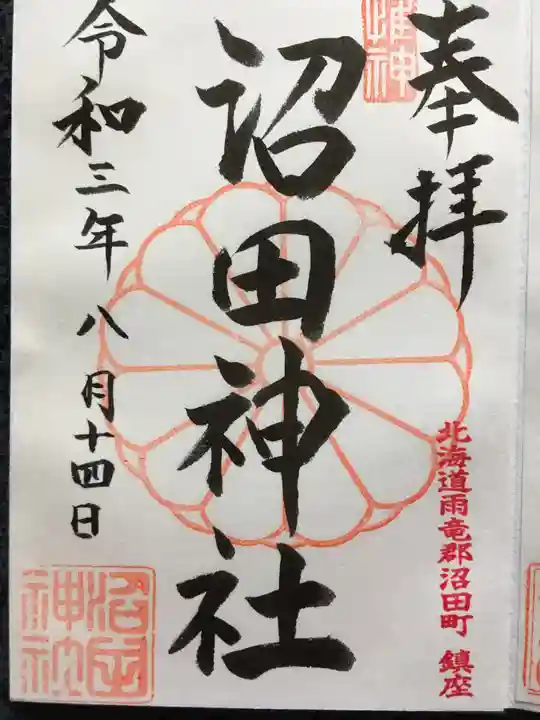 奉拝
北海道雨竜郡沼田町 鎮座
沼田神社
沼田
神社
令和三年八月十四日